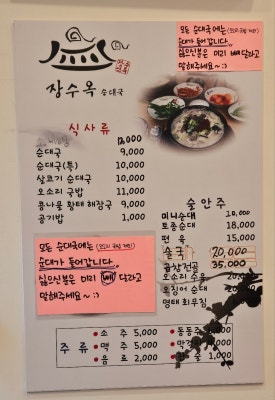 모든 순대국에는 (오소리 국밥 제외)
순대가 들어갑니다.
싫으신분은 미리 빼달라고
말해주세요~ :)
장수옥 순대국
식사류
12,000
순대국 9,000
순대국(특) 10,000
살코기 순대국 10,000
오소리 국밥 11,000
콩나물 황태 해장국 9,000
공기밥 1,000
모든 순대국에는 (오소리 국밥 제외)
순대가 들어갑니다.
싫으신분은 미리 빼 달라고
말해주세요~ :)
술안주
미니순대 10,000
토종순대 18,000
편육 15,000
술국 20,000
곱창전골 35,000
오소리 수육
오징어 순대 20,000
명태 회무침
주류
소주 5,000
맥주 5,000
음료 2,000
동동주
5,000
1,000